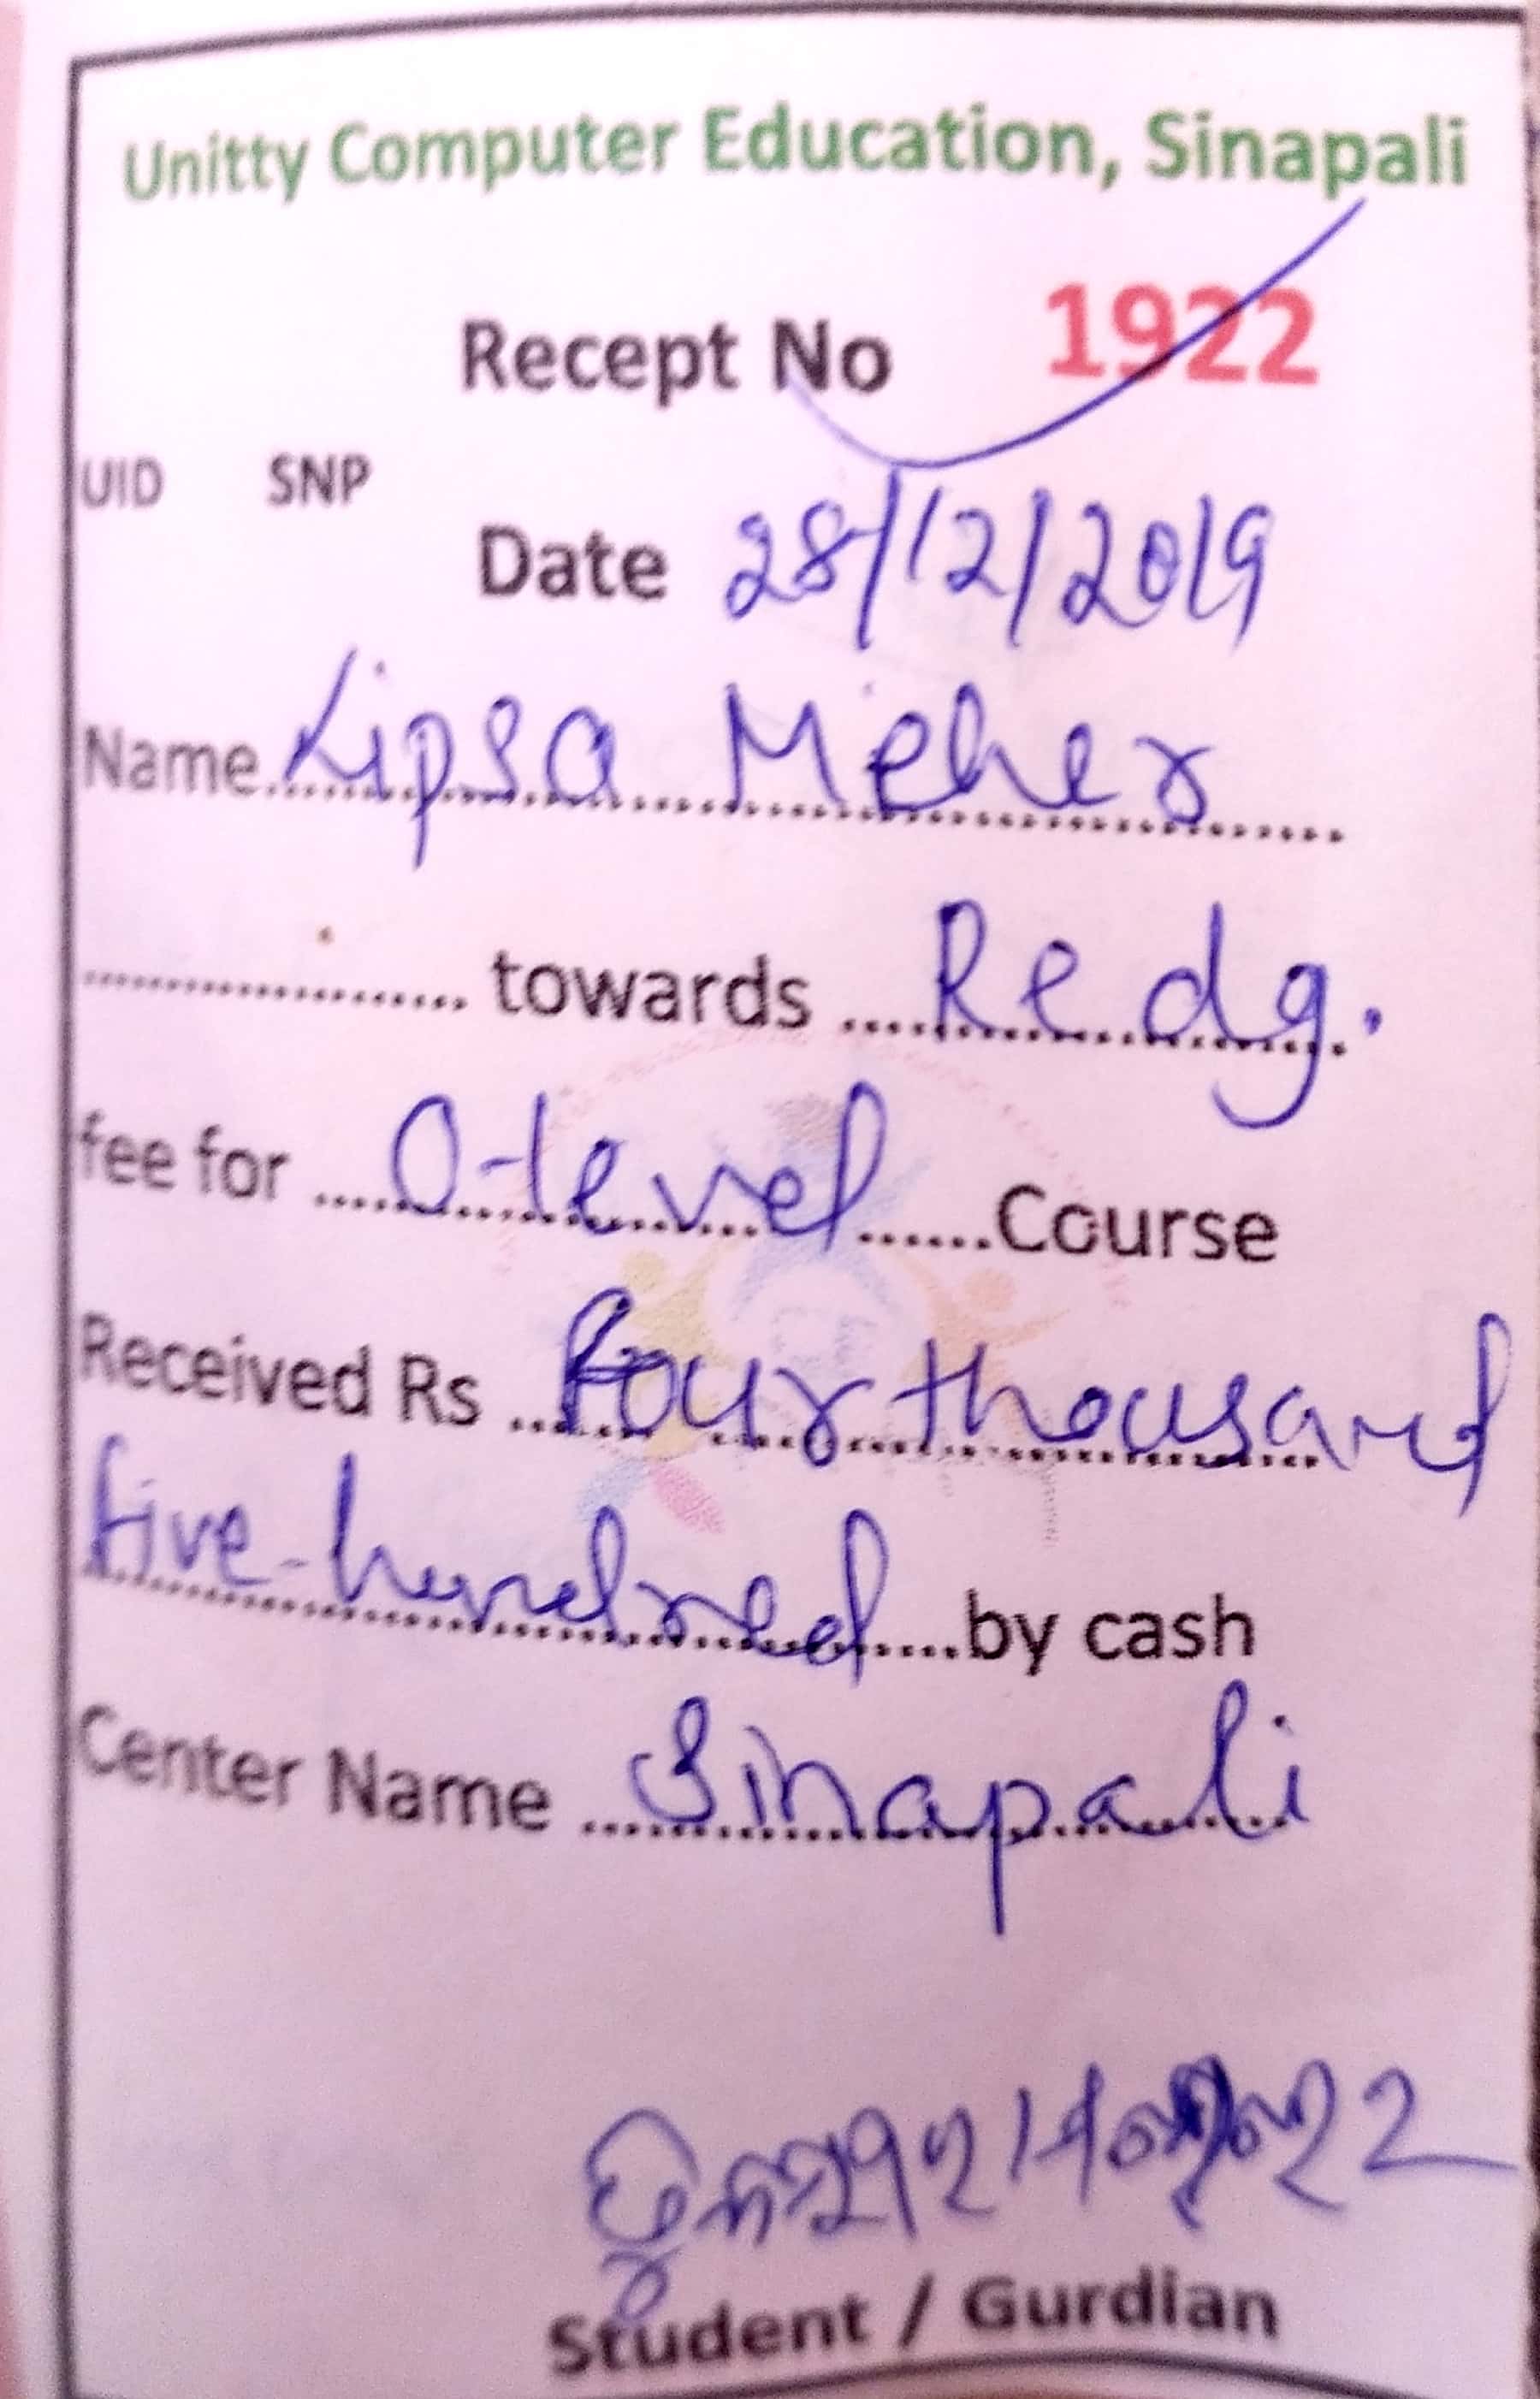 Unitty Computer Education, Sinapali
Recept No 1922
UID SNP
Date 28/12/2019
Name Lipsa Meher
towards Redg.
fee for O-level Course
Received Rs Four thousand
five-hundred by cash
Center Name Sinapali
Student / Gurdian